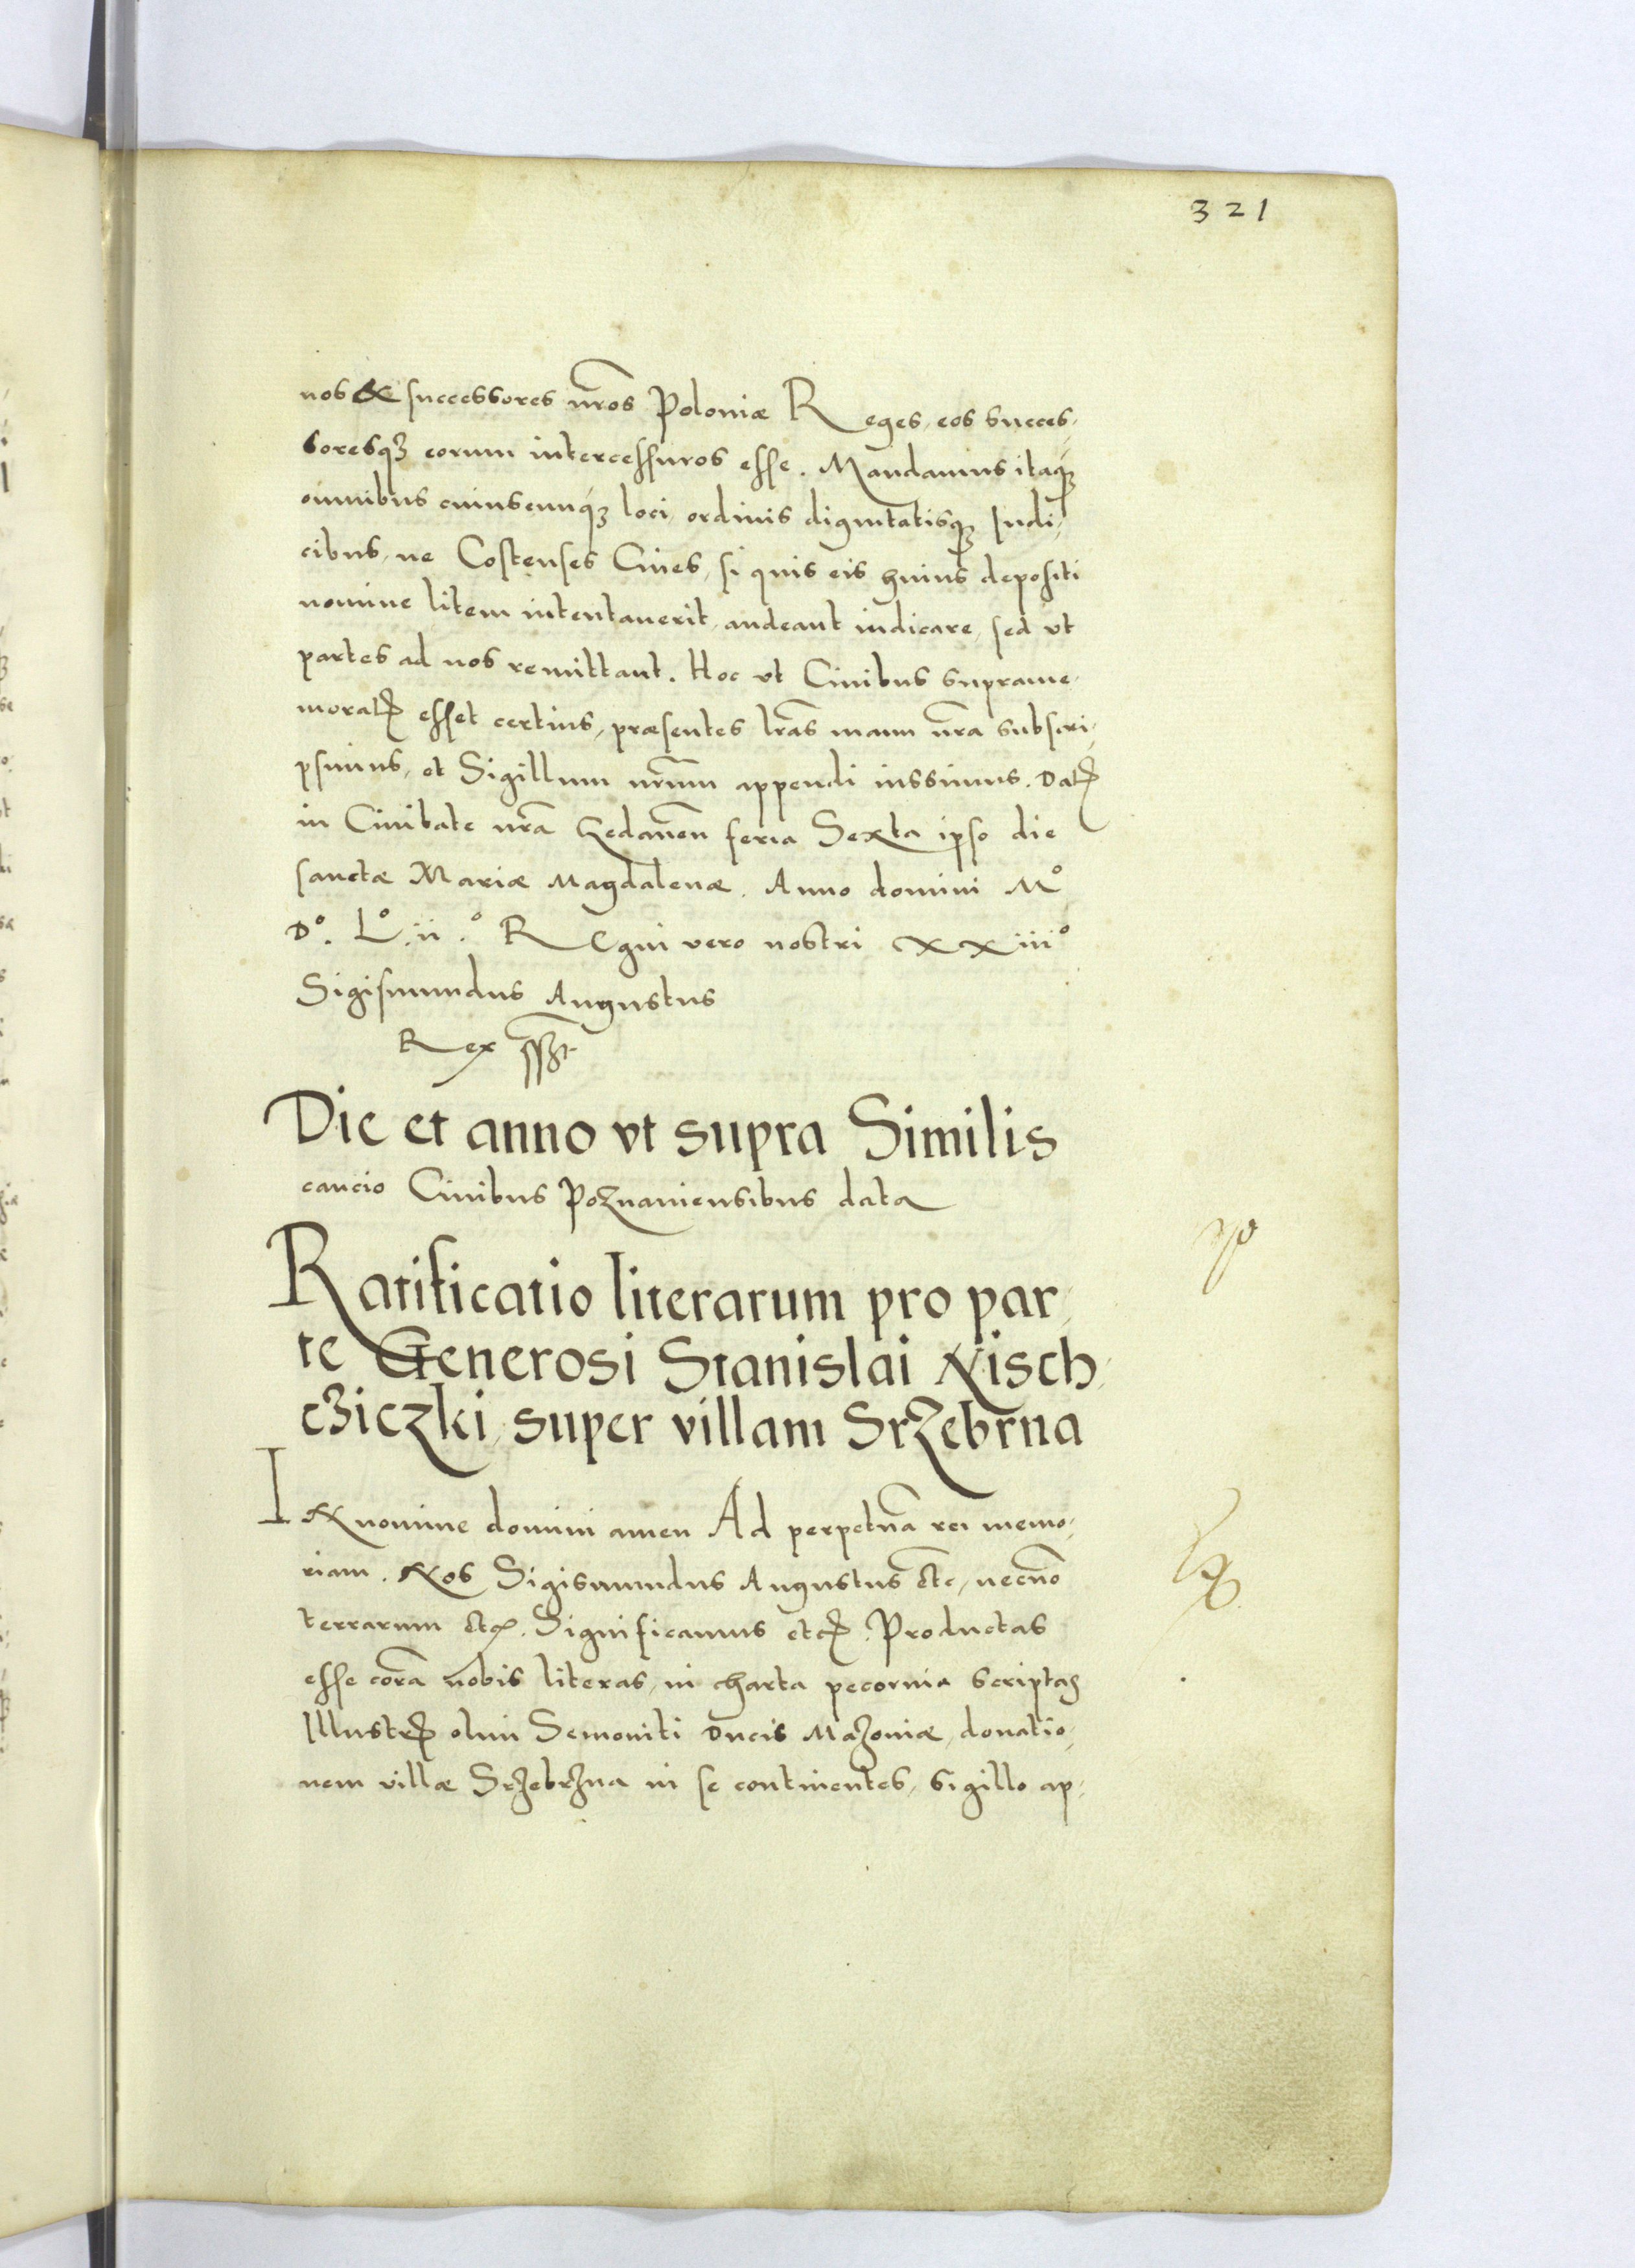 321
nos & successores nr̃os Poloniæ Reges, eos succes,
soresqꝫ eorum intercessuros esse. Mandamus itaqꝫ
omnibus cuiuscunqꝫ loci, ordinis dignitatisqꝫ Iudi,
cibus, ne Costenses Ciues, si quis eis huius depositi
nomine litem intentauerit, audeant iudicare, sed vt
partes ad nos remittant. Hoc vt Ciuibus suprame,
moratꝭ esset certius, præsentes lr̃as manu nr̃a subscri,
psimus, et Sigillum nr̃um appendi iussimus. Datꝭ
in Ciuitate nr̃a Gedaneñ feria Sexta ipso die
sanctæ Mariæ Magdalenæ. Anno domini Mº
Dº. Lº. iiº. REgni vero nostri xxiiiº
Sigismundus Augustus
Rex sszt
Die et anno vt supra Similis
caucio Ciuibus Poznaniensibus data
Ratificatio literarum pro par,
te Generosi Stanislai Nisch,
cziczki, super villam Srzebrna
IN nomine domini amen Ad perpetuã rei memo,
riam. Nos Sigismundus Augustus etc, necnõ
terrarum etcꝭ. Significamus etcꝭ. Productas
esse corã nobis literas, in charta pecorina scriptas
Illustrꝭ olim Semouiti Ducis Mazouiæ, donatio,
nem villæ Srzebrzna in se continentes, sigillo ap,